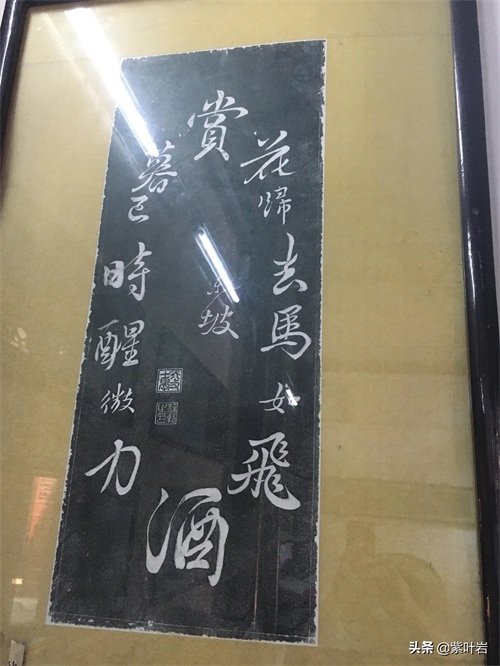 賞花歸去馬如飛酒力微醒時已暮
東坡
头条 @紫叶岩